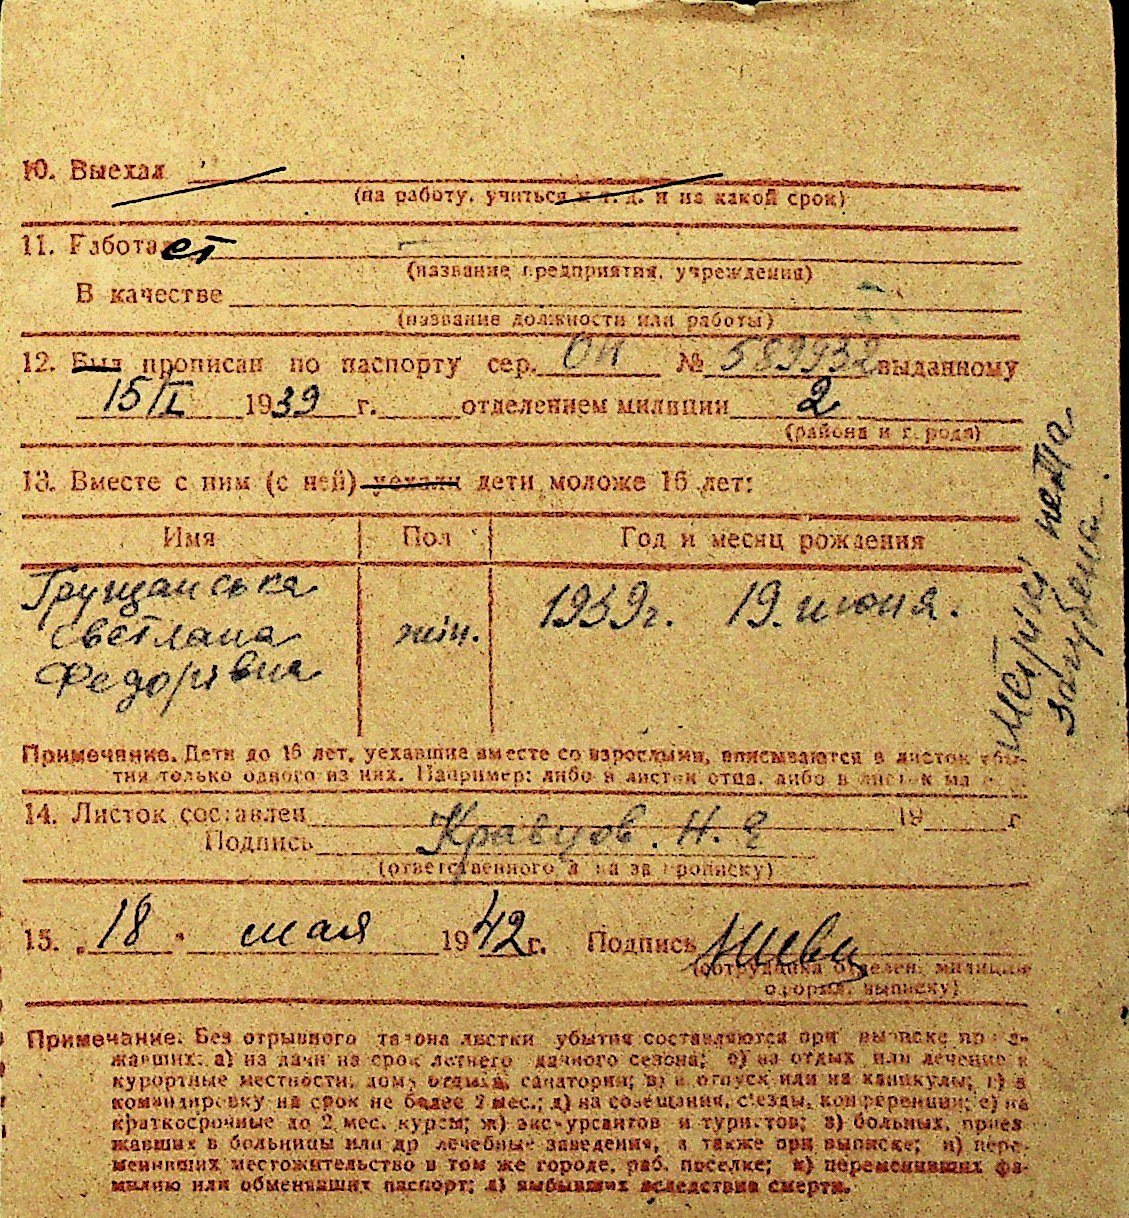 10. Выехал
(на работу, учиться и т. д. и на какой срок)
11. Работает
(название предприятия, учреждения)
В качестве
(название должности или работы)
12. Был прописан по паспорту сер. ОН № 589932 выданному
15/I 1939 г. отделением милиции 2
(района и города)
13. Вместе с ним (с ней) уехали дети моложе 16 лет:
Имя Пол Год и месяц рождения
Грущанська
Светлана жін. 1939г. 19. июня.
Федорівна
загублена.
Примечание. Дети до 16 лет, уехавшие вместе со взрослыми, вписываются в листок убы-
тия только одного из них. Например: либо в листок отца, либо в листок
14. Листок составлен 19 г
Подпись Кравцов. Н. Я
(ответственного за прописку)
15. „18" мая 1942 г. Подпись
(сотрудника отделен. милиции
оформ. выписку)
Примечание. Без отрывного талона листки убытия составляются при выписке прое-
жавших: а) на дачи на срок летнего дачного сезона; б) на отдых или лечение в
курортные местности, дома отдыха, санатории; в) в отпуск или на каникулы; г) в
командировку на срок не более 2 мес.; д) на совещания, съезды, конференции; е) на
краткосрочные до 2 мес. курсы; ж) экскурсантов и туристов; з) больных, приез
жавших в больницы или др лечебные заведения, а также при выписке; и) пере-
менивших местожительство в том же городе, раб. поселке; к) переменивших фа-
милию или обменявших паспорт; л) выбывших вследствие смерти.